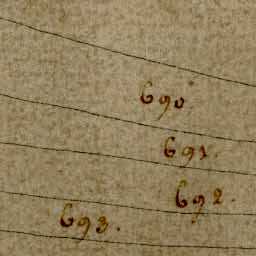 690
691.
692.
693.